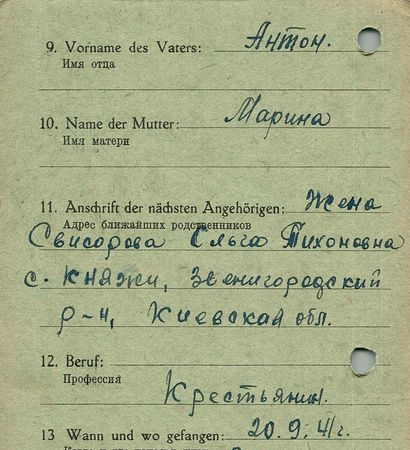 9. Vorname des Vaters: Антон.
Имя отца
10. Name der Mutter: Марина
Имя матери
11. Anschrift der nächsten Angehörigen: Жена
Адрес ближайших родственников
Ольга Тихоновна
с. Княжи, Звенигородский
р-н, Киевская обл.
12. Beruf:
Профессия
Крестьянин.
13 Wann und wo gefangen: 20.9.41г.